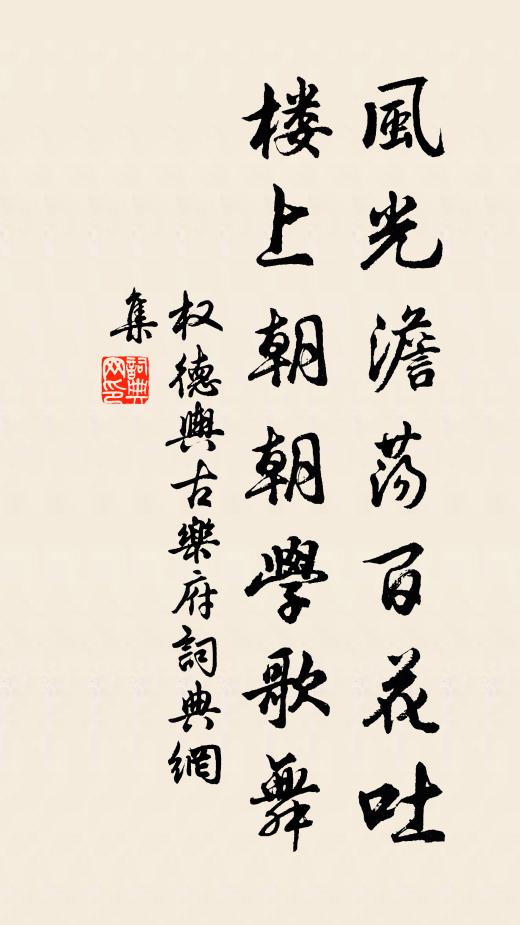 風光澹荡百花吐
楼上朝朝學歌舞
权德輿古樂府詞典網
集
詞典
网印